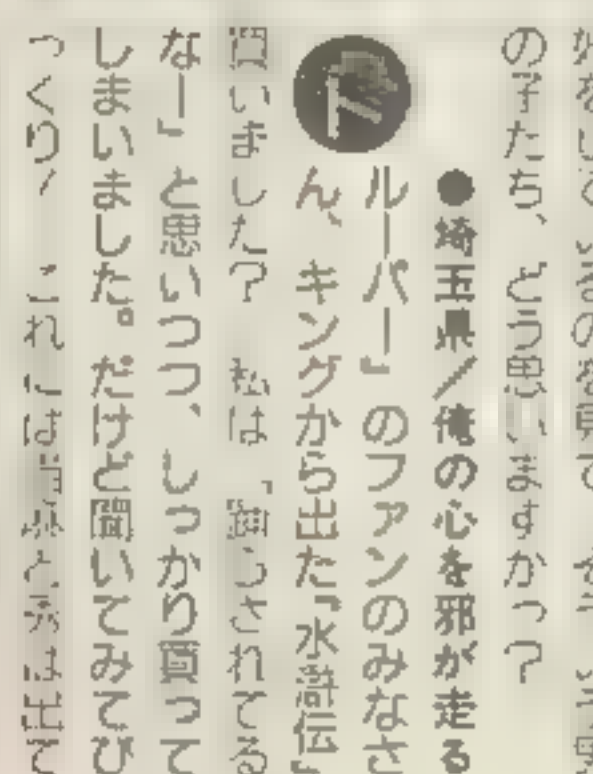 の子たち、どう思いますかっ?
●埼玉県/俺の心を邪が走る
ルーパー』のファンのみなさ
ん、キングから出た『水滸伝』
買いました? 私は「踊らされてる
なー」と思いつつ、しっかり買って
しまいました。だけど聞いてみてび
っくり! これには